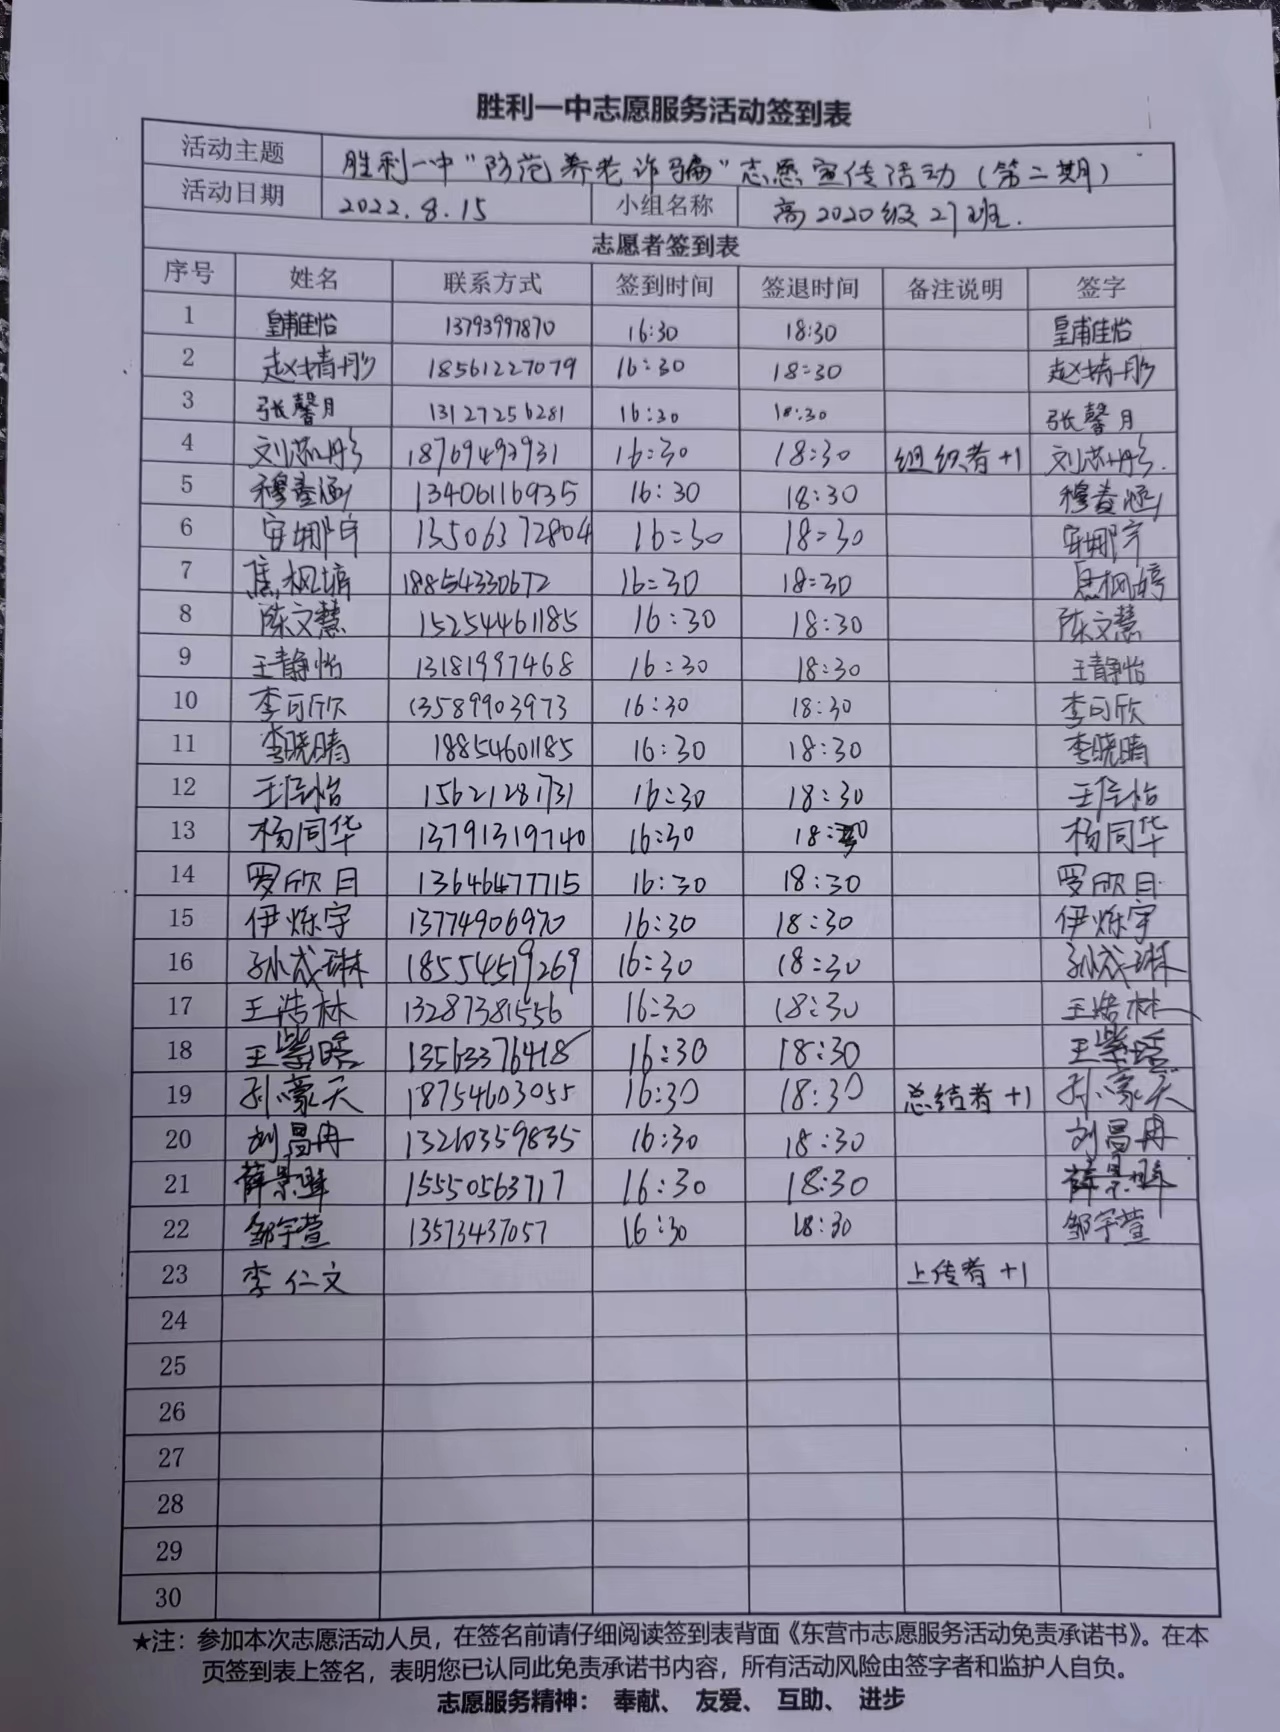 胜利一中志愿服务活动签到表
活动主题 胜利一中“防范养老诈骗”志愿宣传活动(第二期)
活动日期 2022.8.15 小组名称 高2020级27班.
志愿者签到表
序号 姓名 联系方式 签到时间 签退时间 备注说明 签字
1 皇甫佳怡 13793997870 16:30 18:30 皇甫佳怡
2 赵婧彤 18561227079 16:30 18:30 赵婧彤
3 张馨月 13127256281 16:30 18:30 张馨月
4 刘芯彤 18769493931 16:30 18:30 组织者+1 刘芯彤
5 穆春涵 13406116935 16:30 18:30 穆春涵
6 安娜宇 13506372804 16:30 18:30 安娜宇
7 焦枫婷 18854330672 16:30 18:30 焦枫婷
8 陈文慧 15254461185 16:30 18:30 陈文慧
9 王静怡 13181997468 16:30 18:30 王静怡
10 李可欣 13589903973 16:30 18:30 李可欣
11 李晓晴 18854601185 16:30 18:30 李晓晴
12 王怡 15621281731 16:30 18:30 王怡
13 杨同华 13791319740 16:30 18:30 杨同华
14 罗欣目 13646477715 16:30 18:30 罗欣目
15 伊烁宇 13774906970 16:30 18:30 伊烁宇
16 孙成琳 18554519269 16:30 18:30 孙成琳
17 王浩林 13287381556 16:30 18:30 王浩林
18 王紫晗 13563376418 16:30 18:30 王紫晗
19 孙豪天 18754603055 16:30 18:30 总结者+1 孙豪天
20 刘昌冉 13260359835 16:30 18:30 刘昌冉
21 薛景 15550563717 16:30 18:30 薛景
22 邹宇萱 13573437057 16:30 18:30 邹宇萱
23 李仁文 上传者+1
24
25
26
27
28
29
30
★注：参加本次志愿活动人员，在签名前请仔细阅读签到表背面《东营市志愿服务活动免责承诺书》。在本
页签到表上签名，表明您已认同此免责承诺书内容，所有活动风险由签字者和监护人自负。
志愿服务精神： 奉献、 友爱、 互助、 进步